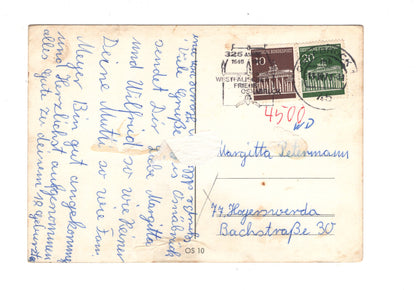 Hannover den
Viele Grüße aus Osnabrück
sendet Dir liebe Margitta
und Wilfried so wie Reiner
Deine Mutti so wie Fam.
Meyer Bin gut angekommen
und Herzlichst aufgenommen
alles Gute zu deinem 18 Geburtst
325
1648
WESTFÄLISCHER
FRIEDE
10
DEUTSCHE BUNDESPOST
20
DEUTSCHE BUNDESPOST
45
4500
Margitta Petermann
77 Hoyerswerda
Bachstraße 30
OS 10